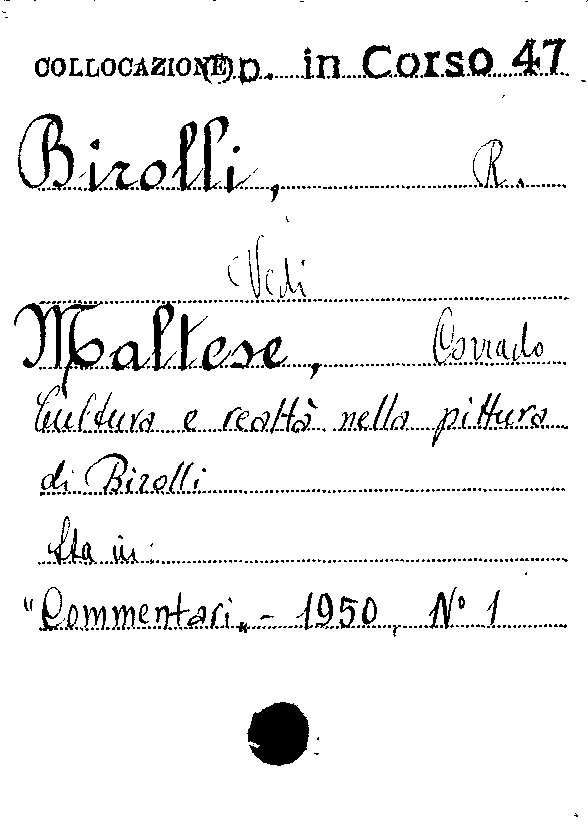 COLLOCAZIONE Op. in Corso 47
Birolli, R.
Vedi
Maltese, Corrado
Cultura e realtà nella pittura
di Birolli
Sta in:
"Commentari„ - 1950, N° 1